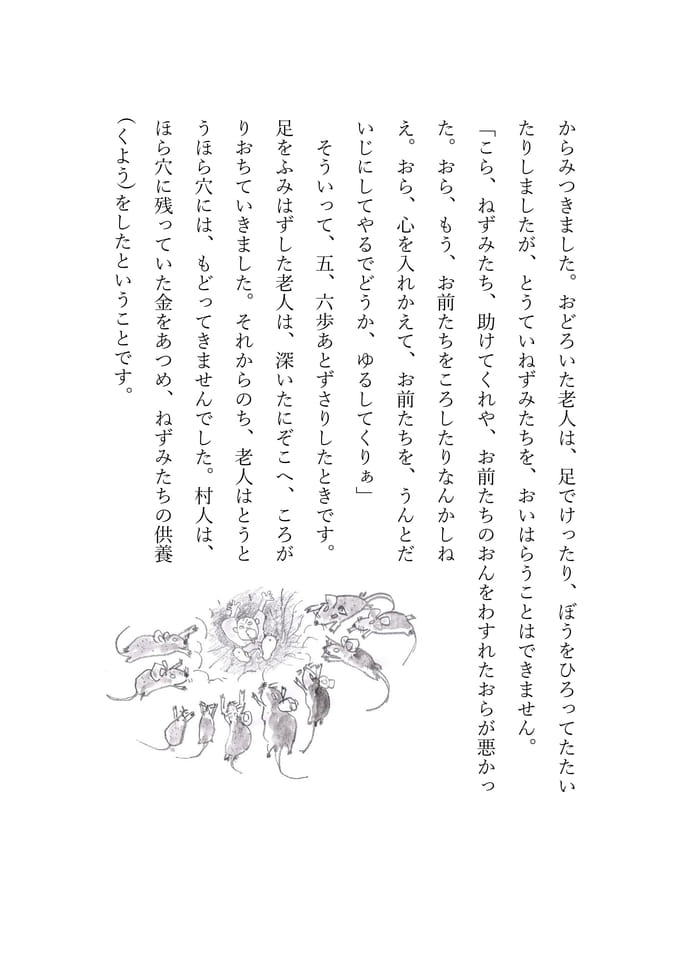 からみつきました。おどろいた老人は、足でけったり、ぼうをひろってたたい
たりしましたが、とうていねずみたちを、おいはらうことはできません。
「こら、ねずみたち、助けてくれや、お前たちのおんをわすれたおらが悪かっ
た。おら、もう、お前たちをころしたりなんかしね
え。おら、心を入れかえて、お前たちを、うんとだ
いじにしてやるでどうか、ゆるしてくりぁ」
そういって、五、六歩あとずさりしたときです。
足をふみはずした老人は、深いたにぞこへ、ころが
りおちていきました。それからのち、老人はとうと
うほら穴には、もどってきませんでした。村人は、
ほら穴に残っていた金をあつめ、ねずみたちの供養
(くよう)をしたということです。